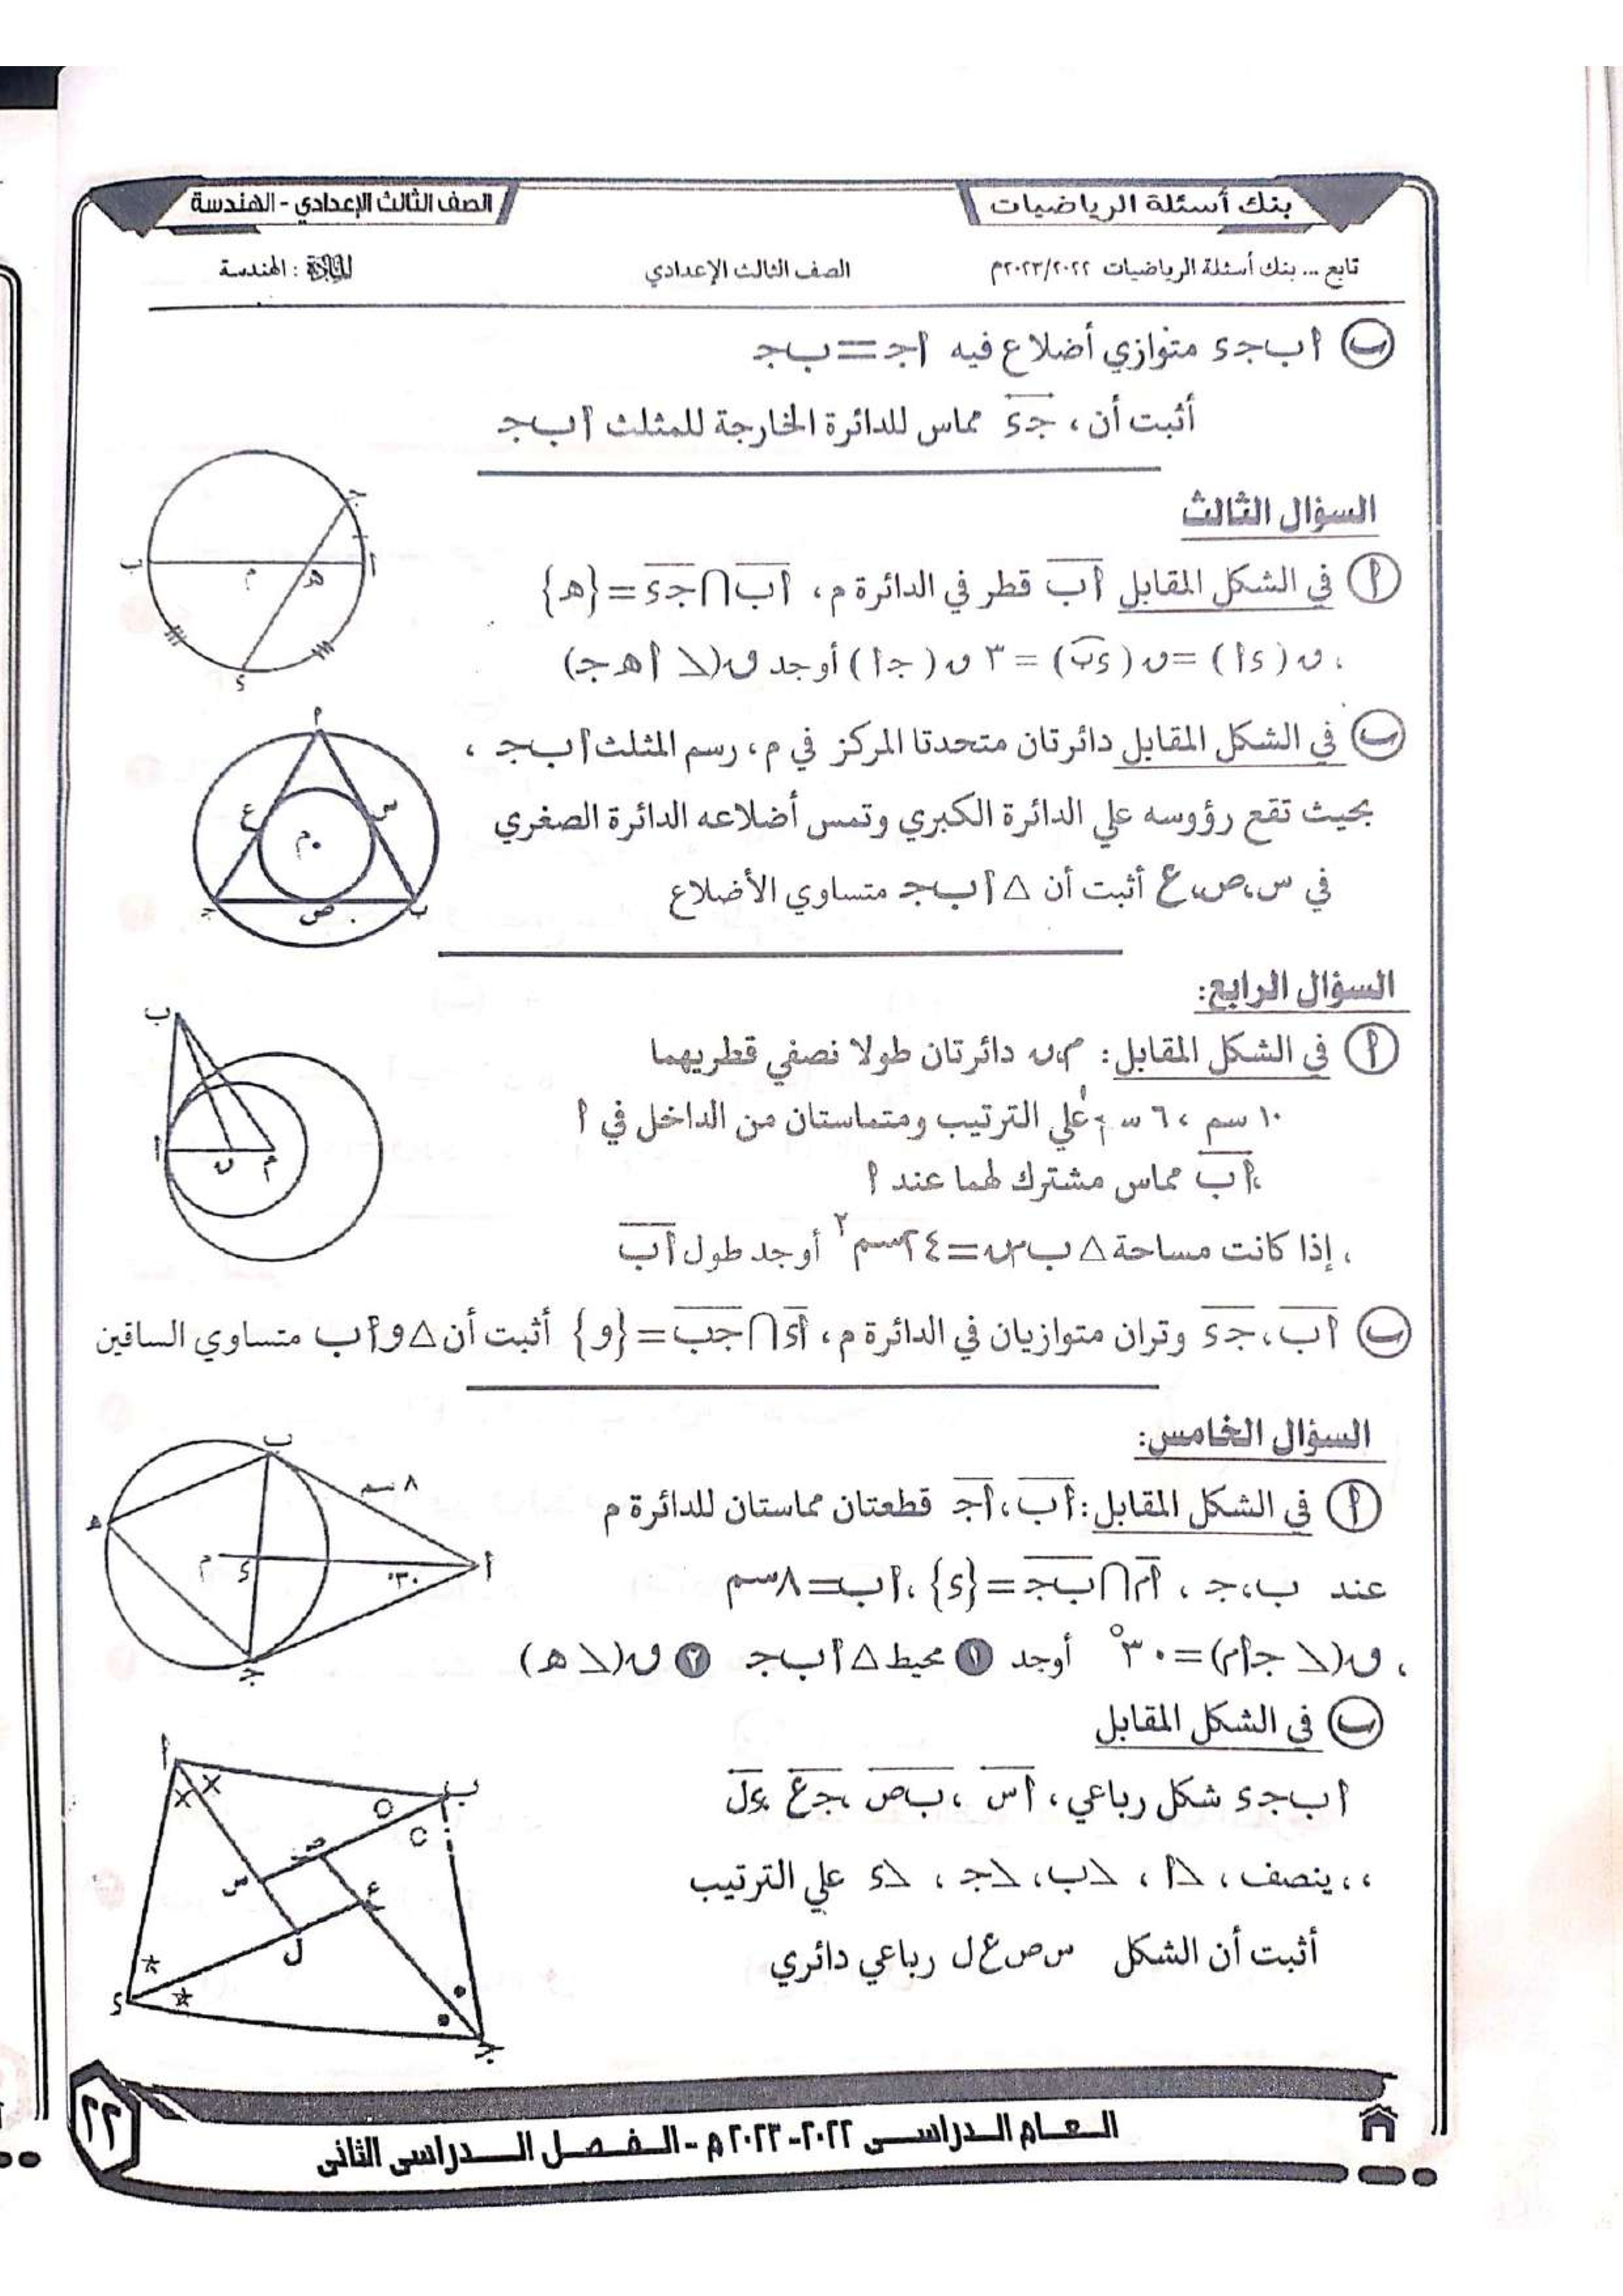 بنك أسئلة الرياضيات
الصف الثالث الإعدادي - الهندسة
تابع ... بنك أسئلة الرياضيات ٢٠٢٣/٢٠٢٢م
الصف الثالث الإعدادي
المادة : الهندسة
ب أ ب جـ ء متوازي أضلاع فيه أ جـ = ب جـ
أثبت أن ، جـ ء مماس للدائرة الخارجة للمثلث أ ب جـ
السؤال الثالث
أ في الشكل المقابل أ ب قطر في الدائرة م ، أ ب ∩ جـ ء = {هـ}
، ق ( ء أ ) = ق ( ء ب ) = ٣ ق ( جـ أ ) أوجد ق(∠ أ هـ جـ)
جـ
أ
هـ
م
ب
ء
ب في الشكل المقابل دائرتان متحدتا المركز في م ، رسم المثلث أ ب جـ ،
بحيث تقع رؤوسه علي الدائرة الكبري وتمس أضلاعه الدائرة الصغري
في س ، ص ، ع أثبت أن △ أ ب جـ متساوي الأضلاع
أ
س
ع
م
ب
ص
جـ
السؤال الرابع:
أ في الشكل المقابل : م ، ن دائرتان طولا نصفي قطريهما
١٠ سم ، ٦ سم علي الترتيب ومتماستان من الداخل في أ
، أ ب مماس مشترك لهما عند أ
، إذا كانت مساحة △ ب م ن = ٢٤ سم٢ أوجد طول أ ب
ب
أ
ن
م
ب أ ب ، جـ ء وتران متوازيان في الدائرة م ، أ ء ∩ جـ ب = {و} أثبت أن △ و أ ب متساوي الساقين
السؤال الخامس:
أ في الشكل المقابل : أ ب ، أ جـ قطعتان مماستان للدائرة م
عند ب ، جـ ، أ م ∩ ب جـ = {ء} ، أ ب = ٨ سم
، ق(∠ جـ أ م) = ٣٠° أوجد ١ محيط △ أ ب جـ ٢ ق(∠ هـ)
ب
٨ سم
هـ
م
ء
٣٠°
أ
جـ
ب في الشكل المقابل
أ ب جـ ء شكل رباعي ، أ س ، ب ص ، جـ ع ، ء ل
، ، ينصف ، ∠أ ، ∠ب ، ∠جـ ، ∠ء علي الترتيب
أثبت أن الشكل س ص ع ل رباعي دائري
أ
ب
ص
س
ع
ل
ء
جـ
العام الدراسى ٢٠٢٢-٢٠٢٣ م - الفصل الدراسى الثانى
٢٢